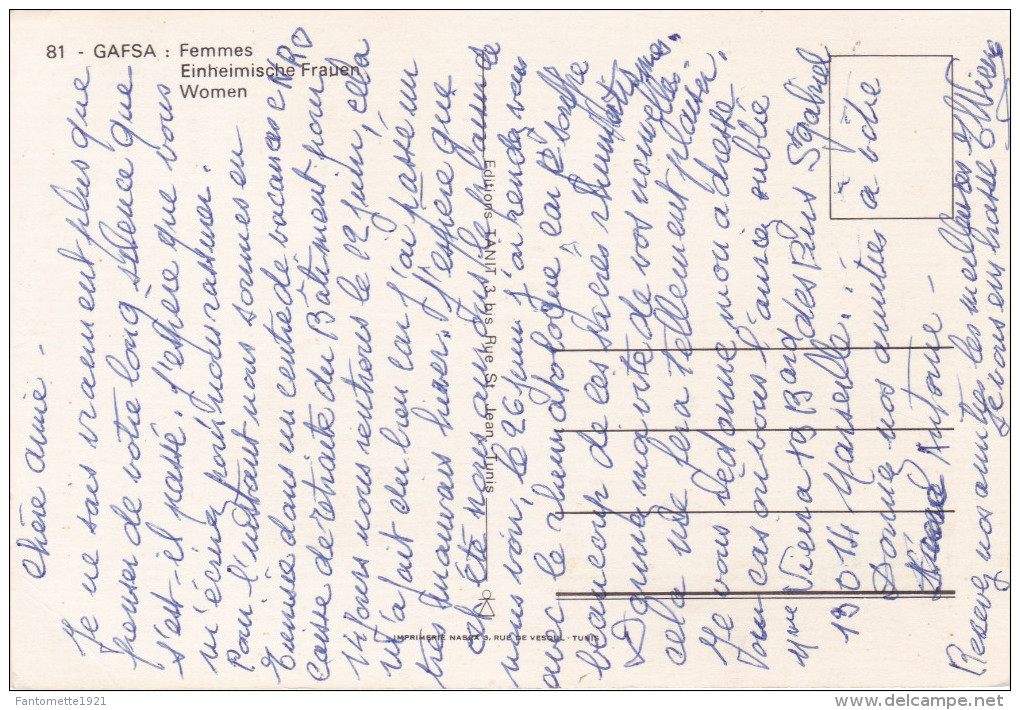 81 - GAFSA : Femmes
Einheimische Frauen
Women
Chère amie -
Je ne sais vraiment plus que
penser de votre long silence que
s'est-il passé. J'espère que vous
m'écrirez pour nous rassurer.
Pour l'instant nous sommes en
Tunisie dans un centre de vacances CNRO
caisse de retraite du Bâtiment pour
nous rentrons le 12 juin, cela
m'a fait du bien car j'ai passé un
très mauvais hiver. J'espère que
cet été nous
nous voir, le 26 juin j'ai rendez vous
avec le rhumatologue car je souffre
beaucoup de ces sacrés rhumatismes.
Donnez moi vite de vos nouvelles
cela me fera tellement plaisir.
Je vous redonne mon adresse
au cas où vous l'auriez oublié
Mme Viera 19 Bard des Plus Soghiel
13014 Marseille.
Donnez nos amitiés à votre
Antoine -
Recevez nos amitiés les meilleures et
Je vous embrasse
Editions TANIT 3 bis Rue St. Jean - Tunis
IMPRIMERIE NASRA 3. RUE DE VESOUL - TUNIS
Fantomette1921
delcampe.net